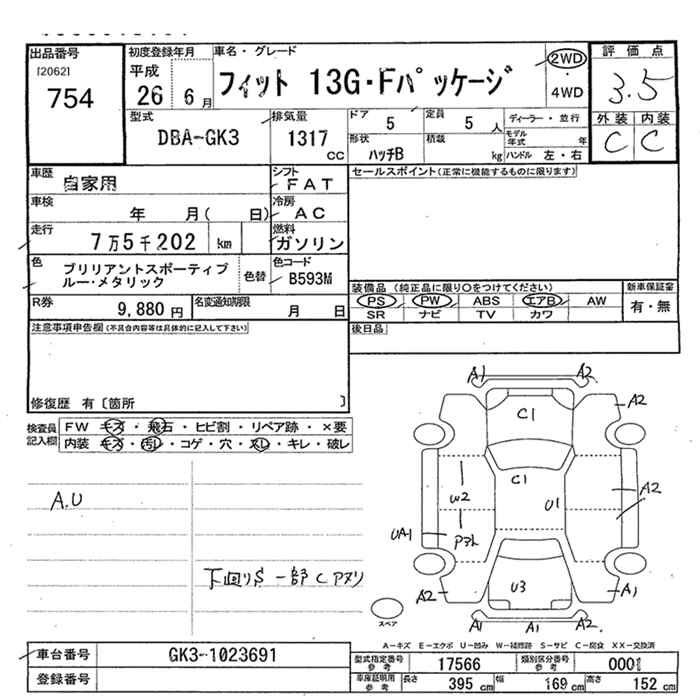 出品番号
[2062]
754
初度登録年月
平成
26 6月
車名・グレード
フィット 13G・Fパッケージ
2WD
・
4WD
評価点
3.5
型式
DBA-GK3
排気量
1317
cc
ドア
5
定員
5 人
形状
ハッチB
積載
kg
ディーラー・並行
モデル年式 年
ハンドル 左・右
外装 内装
C C
車歴
自家用
シフト
FAT
車検
年 月( 日)
冷房
AC
走行
7万5千202 km
燃料
ガソリン
色
ブリリアントスポーティブ
ルー・メタリック
色替
色コード
B593M
R券
9,880 円
名変通知期限
月 日
セールスポイント(正常に機能するものに限ります)
装備品 (純正品に限り○をつけてください)
PS PW ABS エアB AW
SR ナビ TV カワ
新車保証書
有・無
後日品
注意事項申告欄(不具合内容等は具体的に記入して下さい)
修復歴 有〔箇所 〕
検査員
記入欄
FW キズ・飛石・ヒビ割・リペア跡・×要
内装 キズ・汚れ・コゲ・穴・スレ・キレ・破レ
A.U
下回りS 一部Cアリ
A1 A2
A2
C1
C1
W2
U1
A2
UA1
Pアト
U3
A2
A1
A1 A1 A2
スペア
A-キズ E-エクボ U-凹み W-補修跡 S-サビ C-腐食 XX-交換済
車台番号
GK3-1023691
登録番号
型式指定番号
参考
17566
類別区分番号
参考
0001
車庫証明用
参考
長さ 395 cm 幅 169 cm 高さ 152 cm